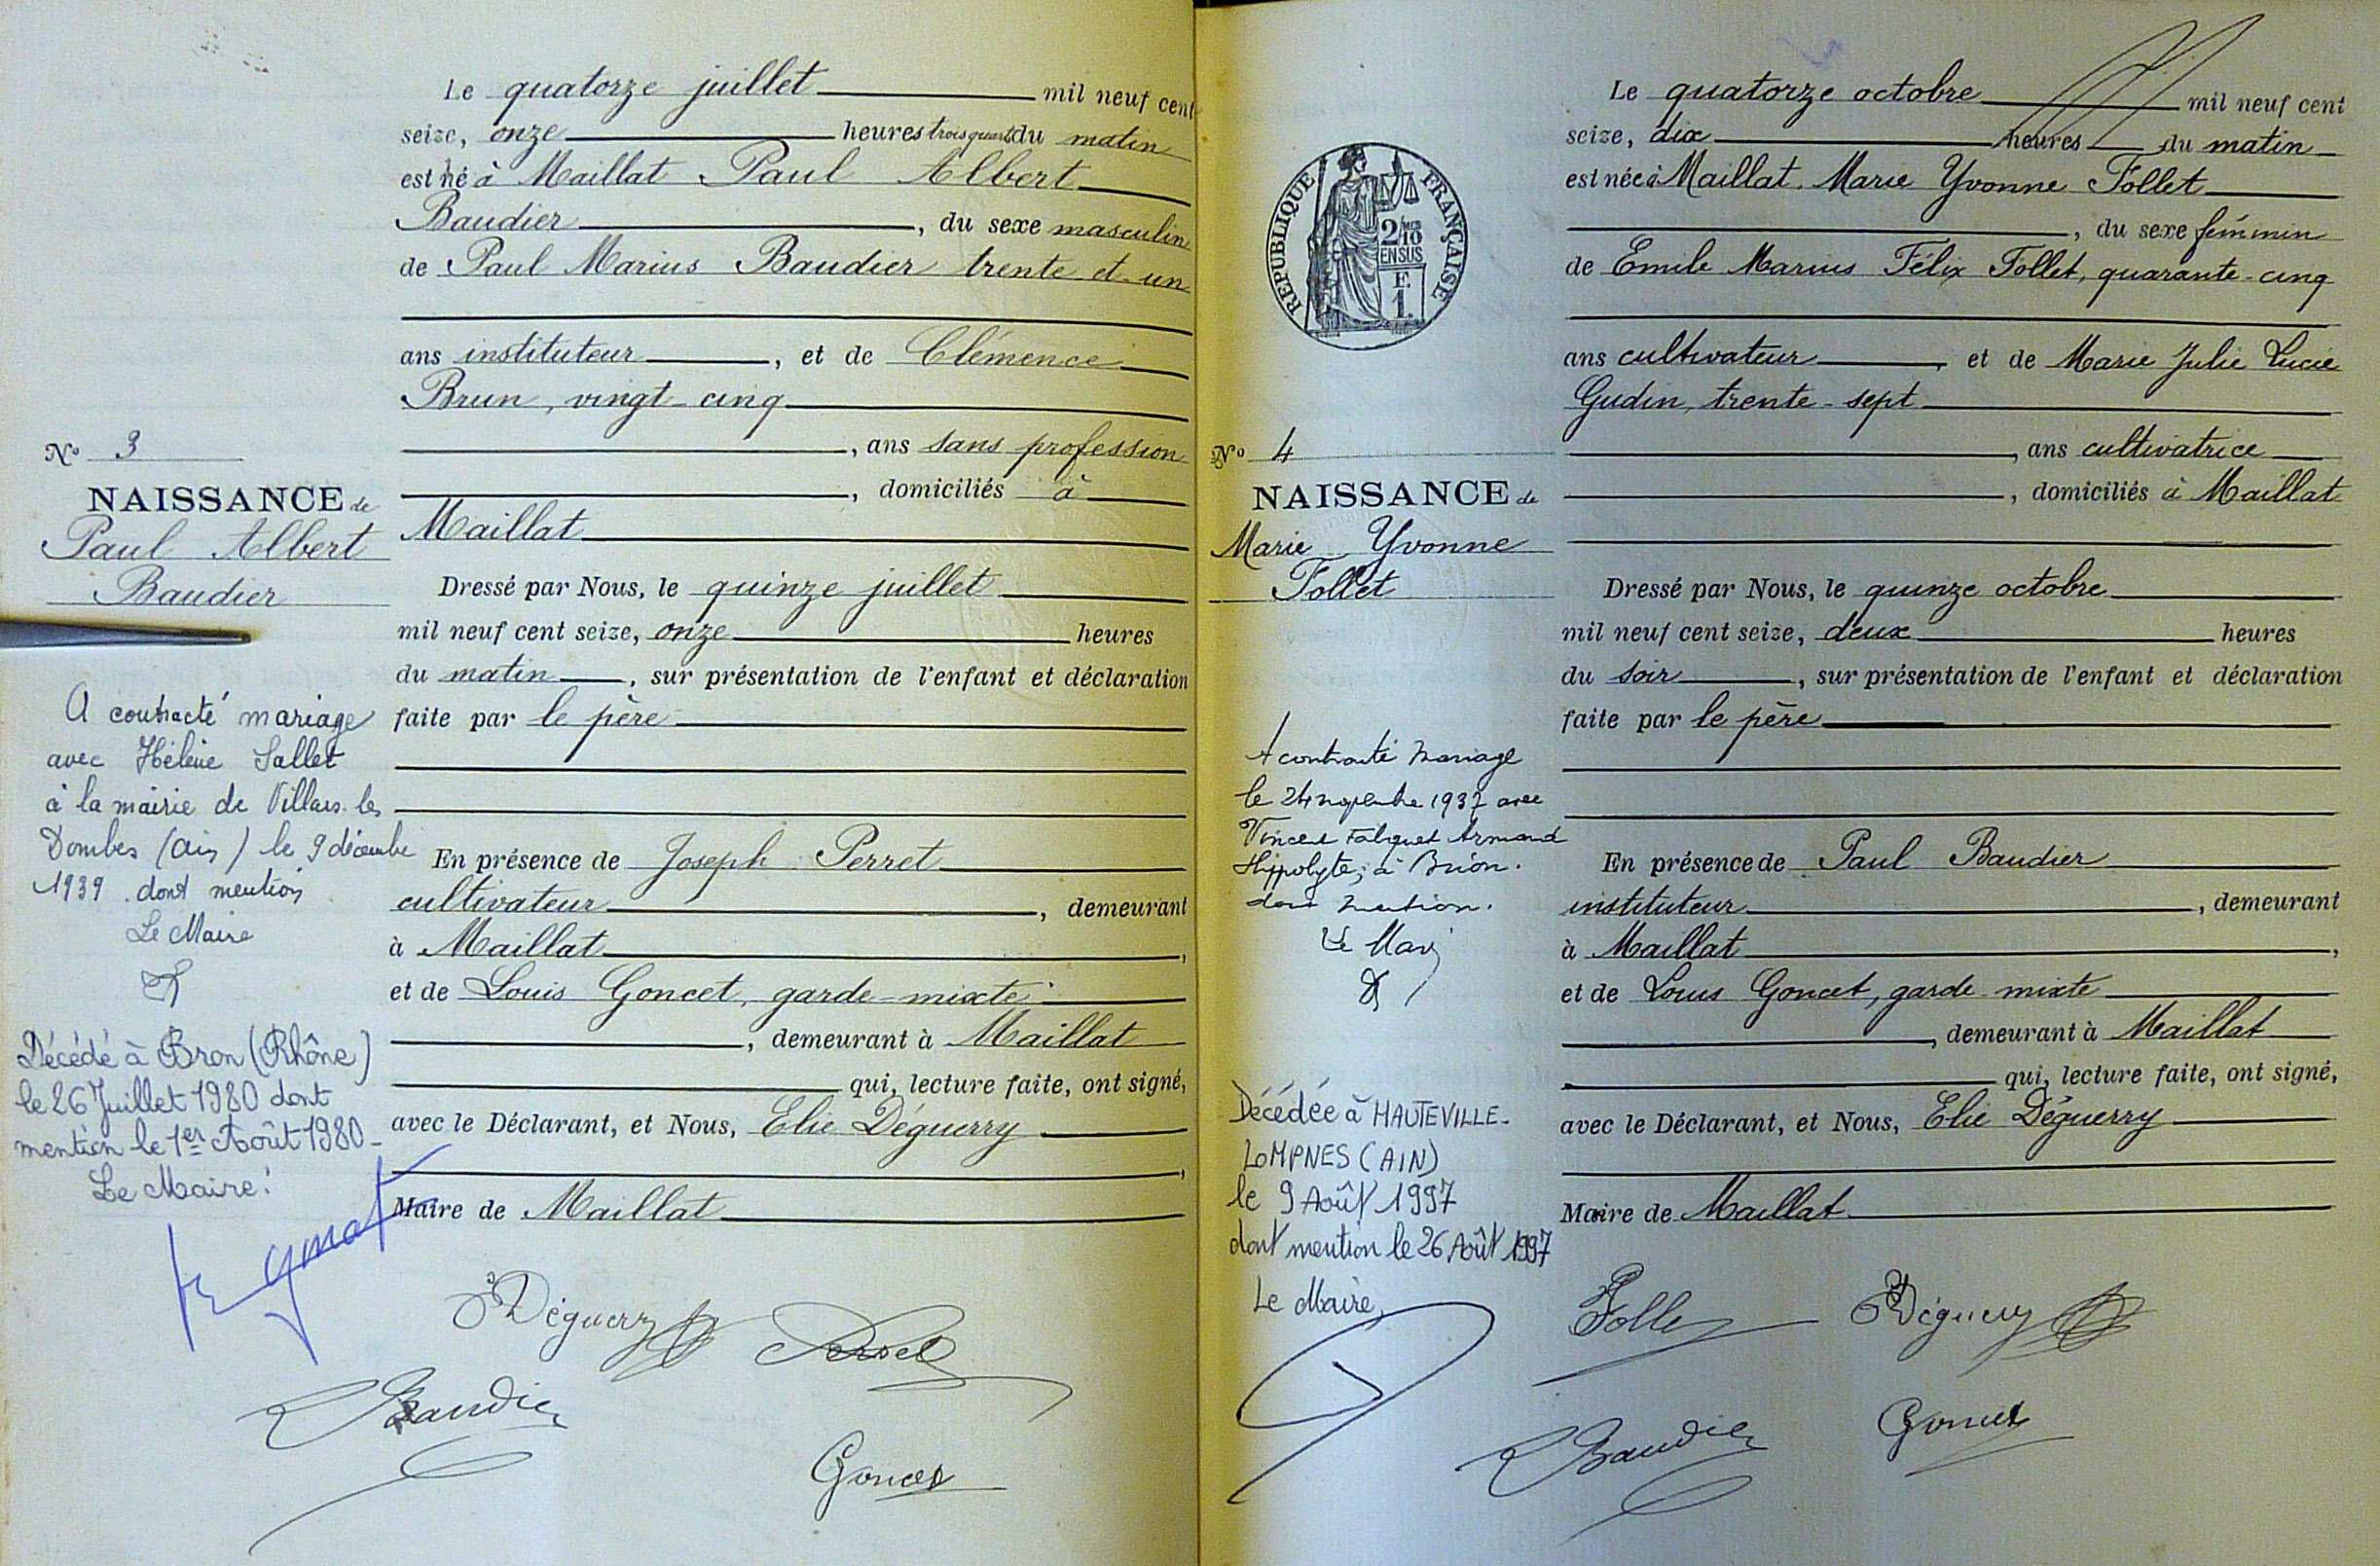 Le quatorze juillet mil neuf cent
seize, onze heures trois quarts du matin
est né à Maillat Paul Albert
Baudier, du sexe masculin
de Paul Marius Baudier trente et un
ans instituteur, et de Clémence
Brun, vingt-cinq
, ans sans profession
, domiciliés à
Maillat
Dressé par Nous, le quinze juillet
mil neuf cent seize, onze heures
du matin, sur présentation de l'enfant et déclaration
faite par le père
En présence de Joseph Perret
cultivateur, demeurant
à Maillat,
et de Louis Goncet, garde-mixte
, demeurant à Maillat
qui, lecture faite, ont signé,
avec le Déclarant, et Nous, Elie Déguerry
,
Maire de Maillat
Déguerry Perret
Baudier
Goncet
No 3
NAISSANCE de
Paul Albert
Baudier
A contracté mariage
avec Hélène Sallet
à la mairie de Villars-les
Dombes (Ain) le 9 décembre
1939 dont mention
Le Maire
Décédé à Bron (Rhône)
le 26 Juillet 1980 dont
mention le 1er Août 1980-
Le Maire:
Le quatorze octobre mil neuf cent
seize, dix heures du matin
est née à Maillat Marie Yvonne Follet
, du sexe féminin
de Emile Marius Félix Follet, quarante-cinq
ans cultivateur, et de Marie Julie Lucie
Gudin, trente-sept
, ans cultivatrice
, domiciliés à Maillat
Dressé par Nous, le quinze octobre
mil neuf cent seize, deux heures
du soir, sur présentation de l'enfant et déclaration
faite par le père
En présence de Paul Baudier
instituteur, demeurant
à Maillat,
et de Louis Goncet, garde-mixte
, demeurant à Maillat
qui, lecture faite, ont signé,
avec le Déclarant, et Nous, Elie Déguerry
Maire de Maillat
Follet Déguerry
Baudier Goncet
RÉPUBLIQUE FRANÇAISE
2/10 MES
EN SUS
F.
1.
No 4
NAISSANCE de
Marie Yvonne
Follet
A contracté mariage
le 24 novembre 1937 avec
Vincent Falquet Armand
Hippolyte, à Brion.
dont mention.
Le Maire
Décédée à HAUTEVILLE-
LOMPNES (AIN)
le 9 Août 1997
dont mention le 26 Août 1997
Le Maire,